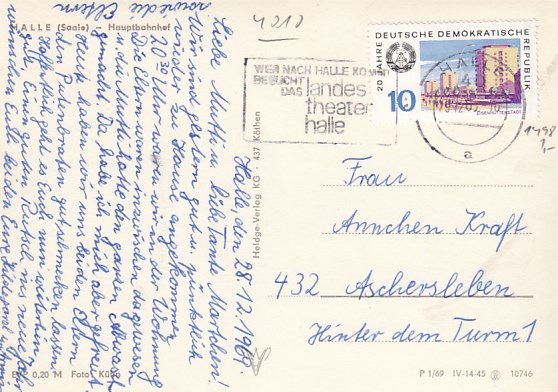 HALLE (Saale) — Hauptbahnhof
4818
20 JAHRE DEUTSCHE DEMOKRATISCHE REPUBLIK
10
EISENHÜTTENSTADT
WER NACH HALLE KOMMT
BESUCHT
DAS landes
theater
halle
HALLE
4
a
1498
1,-
Halle, den 28.12.1969
Liebe Mutti u. liebe Tante Martchen!
Wir sind gestern gut u. pünktlich
wieder zu Hause angekommen.
20.30 Uhr waren wir in der Wohnung
Die Eltern sind inzwischen dagewesen
u. Mutti hatte den ganzen Abwasch
gemacht. Da habe ich mich aber gefreut.
Heute haben wir uns bei den Eltern
den Putenbraten gut schmecken lassen.
Hoffentlich geht es Euch weiterhin
gut. Einen guten Rutsch ins neue Jahr
wünschen Euch beiden Eure Hildegard
sowie die Eltern
Heldge-Verlag KG · 437 Köthen
Frau
Annchen Kraft
432 Aschersleben
Hinter dem Turm 1
EVP 0,20 M Foto: Kühn
P 1/69 IV-14-45 10746